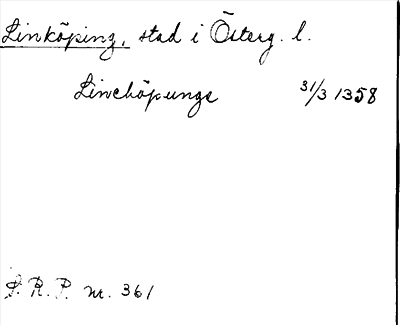 Linköping, stad i Österg. l.
Lincöpunge 31/3 1358
S. R. P. nr. 361